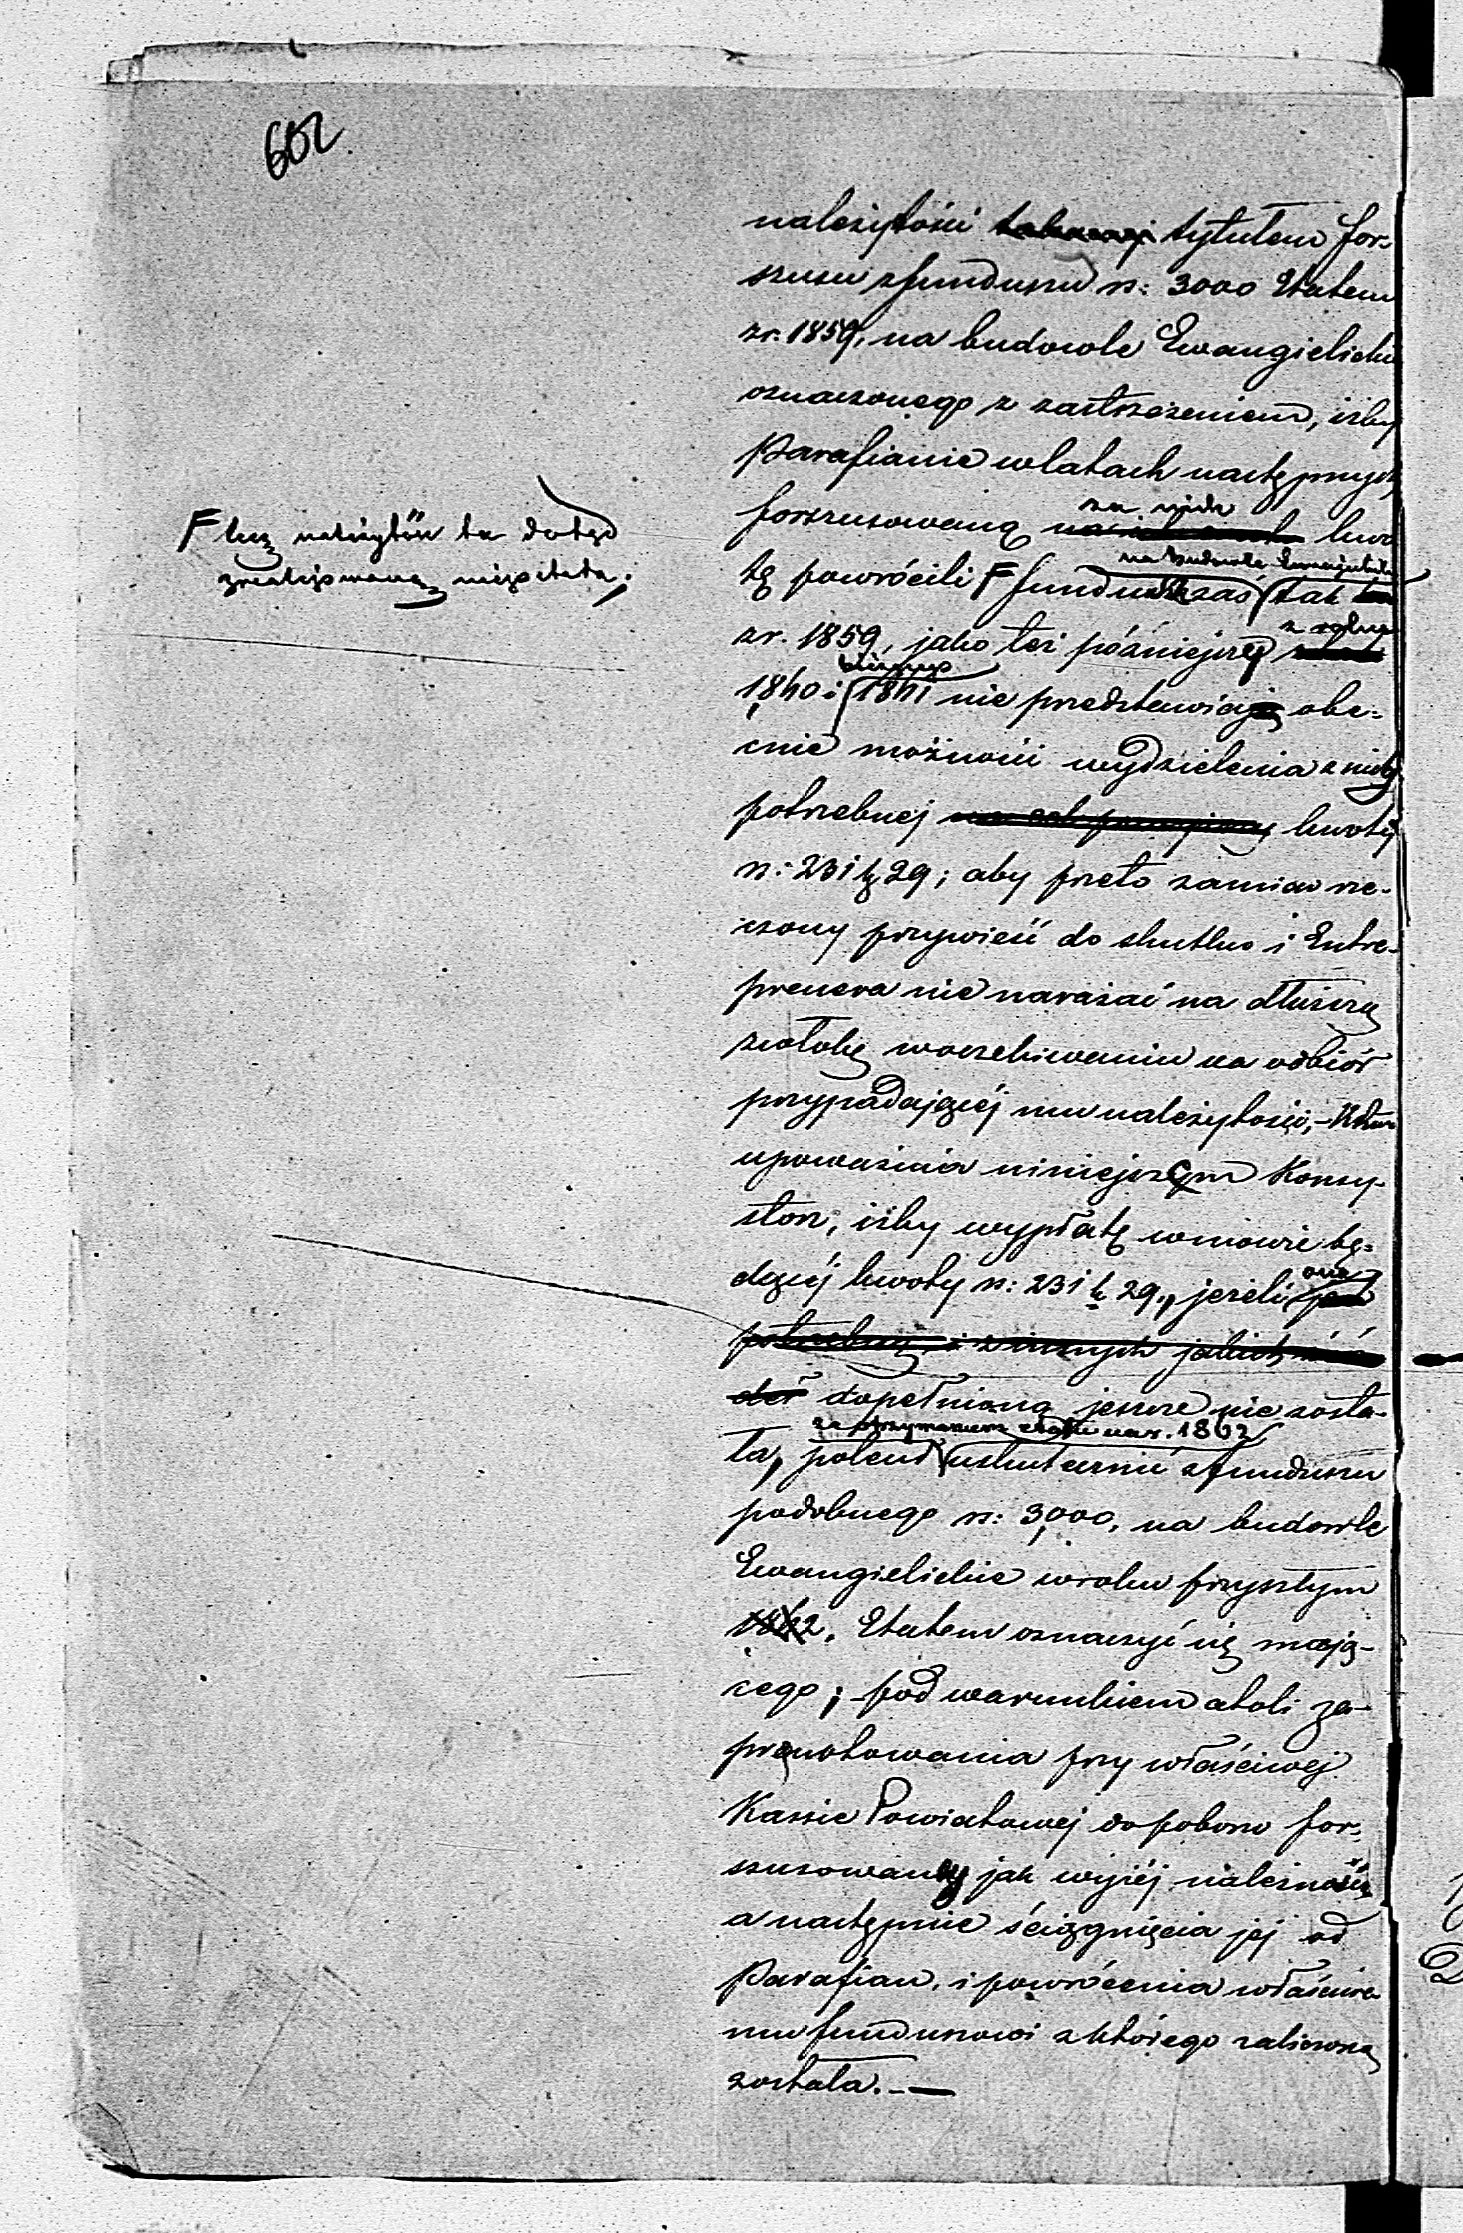 602
należytości tytułem for-
szusu z funduszu rs: 3000 Etatem
z r. 1859, na budowle Ewangielickie
oznaczonego z zastrzeżeniem, iżby
Parafianie w latach następnych
za nich
forszusowaną kwo
na budowle Ewangielickie
tę powrócili F fundusz zaś tak
z r. 1859, jako też późniejszy
bieżącego
1860 i 1861 nie przedstawiają obe-
cnie możności wydzielenia z nich
potrzebnej kwoty
rs: 231 k 29; aby przeto zamiar rze-
czony przywieść do skutku i Entre-
prenera nie narażać na dłuższą
zwłokę w oczekiwaniu na odbiór
przypadającéj mu należytości, –
upoważnia niniejszym Konsy-
storz, iżby wypłatę w mowie bę-
dącéj kwoty rs: 231 k 29, jeżeli
ona
potrzebną z innych jakich
dopełnioną jeszcze nie zosta-
za otrzymaniem etatu na r. 1862
ła, polecił uskutecznić z funduszu
podobnego rs: 3,000, na budowle
Ewangielickie w roku przyszłym
1862, Etatem oznaczyć się mają-
cego; pod warunkiem atoli za-
prenotowania przy właściwej
Kassie Powiatowej do poboru for-
szusowanej jak wyżéj należności
a następnie ściągnięcia jej od
Parafian, i powrócenia właściwe-
mu funduszowi z którego zaliczoną
została. –
F lecz należytość ta dotąd
zrealizowaną niezostała;